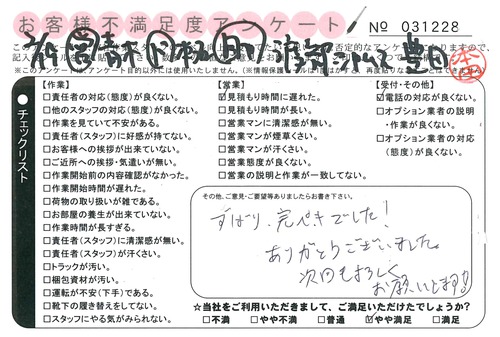 お客様不満足度アンケート
№ 031228
チェックリスト
【作業】
□責任者の対応(態度)が良くない。
□他のスタッフの対応(態度)が良くない。
□作業を見ていて不安がある。
□責任者(スタッフ)に好感が持てない。
□お客様への挨拶が出来ていない。
□ご近所への挨拶・気遣いが無い。
□作業開始前の内容確認がなかった。
□作業開始時間が遅れた。
□荷物の取り扱いが雑である。
□お部屋の養生が出来ていない。
□作業時間が長すぎる。
□責任者(スタッフ)に清潔感が無い。
□責任者(スタッフ)が汗さい。
□トラックが汚い。
□梱包資材が汚い。
□運転が不安(下手)である。
□靴下の履き替えをしてない。
□スタッフにやる気がみられない。
【営業】
☑見積もり時間に遅れた。
□見積もり時間が長い。
□営業マンに清潔感が無い。
□営業マンが煙草くさい。
□営業マンが汗さい。
□営業態度が良くない。
□営業の説明と作業が一致してない。
【受付・その他】
☑電話の対応が良くない。
□オプション業者の説明・作業が良くない。
□オプション業者の対応(態度)が良くない。
その他、ご意見・ご要望等ありましたらお書き下さい。
ずばり、完ぺきでした!
ありがとうございました。
次回もよろしく
お願いします!!
☆当社をご利用いただきまして、ご満足いただけたでしょうか?
□不満 □やや不満 □普通 ☑やや満足 □満足